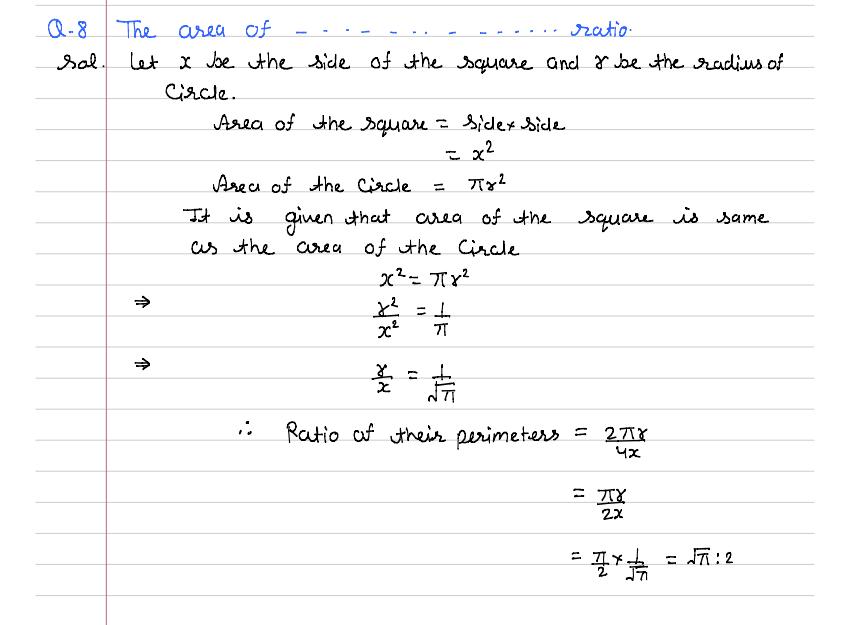 Q-8 The area of - - - - - - - - - - - - - - - ratio.
Sol. Let x be the side of the square and r be the radius of
Circle.
Area of the square = side × side
= x²
Area of the Circle = πr²
It is given that area of the square is same
as the area of the Circle
x² = πr²
⇒ r²/x² = 1/π
⇒ r/x = 1/√π
∴ Ratio of their perimeters = 2πr/4x
= πr/2x
= π/2 × 1/√π = √π : 2